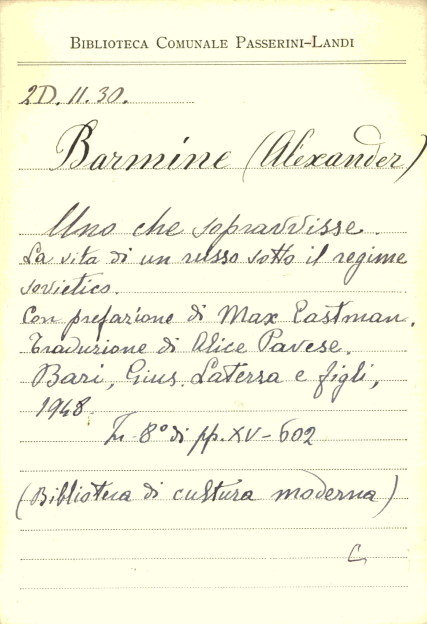 BIBLIOTECA COMUNALE PASSERINI-LANDI
2D. II. 30.
Barmine (Alexander)
Uno che sopravvisse.
La vita di un russo sotto il regime
sovietico.
Con prefazione di Max Eastman.
Traduzione di Alice Pavese.
Bari, Gius. Laterza e figli,
1948.
In 8° di pp. XV-602
(Biblioteca di cultura moderna)
C